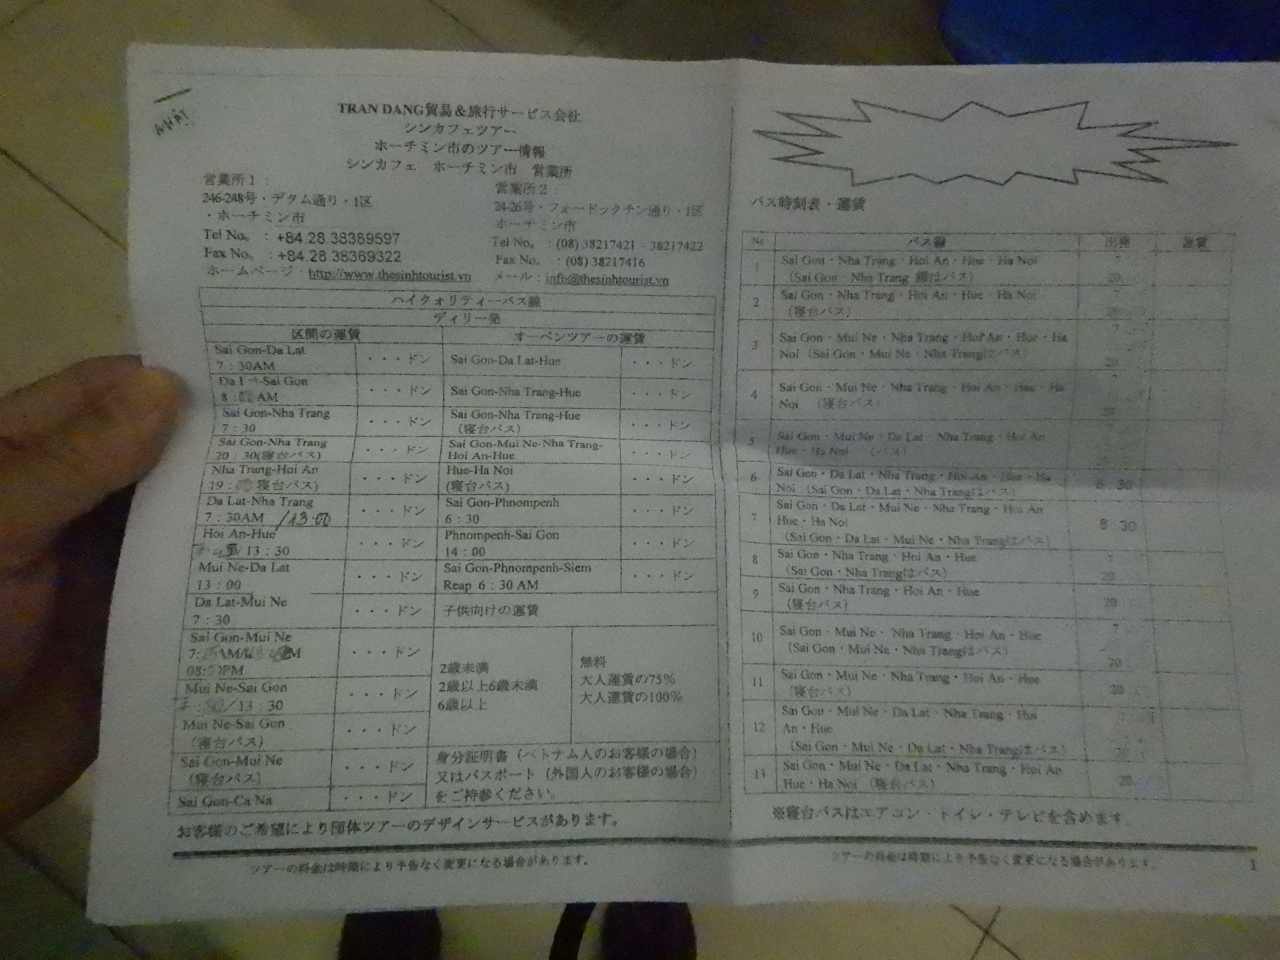 NHẬT
TRAN DANG貿易&旅行サービス会社
シンカフェツアー
ホーチミン市のツアー情報
シンカフェ ホーチミン市 営業所
営業所1：
246-248号・デタム通り・1区
・ホーチミン市
Tel No。：+84.28.38389597
Fax No。：+84.28.38369322
ホームページ：http://www.thesinhtourist.vn
営業所2：
24-26号・フォードックチン通り・1区
ホーチミン市
Tel No。：(08) 38217421 - 38217422
Fax No。：(08) 38217416
メール：info@thesinhtourist.vn
ハイクォリティーバス線
ディリー発
区間の運賃 オーペンツアーの運賃
Sai Gon-Da Lat
7：30AM ・・・ドン Sai Gon-Da Lat-Hue ・・・ドン
Sai Gon
8： AM ・・・ドン Sai Gon-Nha Trang-Hue ・・・ドン
Sai Gon-Nha Trang
7：30 ・・・ドン Sai Gon-Nha Trang-Hue
（寝台バス） ・・・ドン
Sai Gon-Nha Trang
20：30(寝台バス) ・・・ドン Sai Gon-Mui Ne-Nha Trang-
Hoi An-Hue ・・・ドン
Nha Trang-Hoi An
19： 寝台バス) ・・・ドン Hue-Ha Noi
(寝台バス) ・・・ドン
Da Lat-Nha Trang
7：30AM /13:00 ・・・ドン Sai Gon-Phnompenh
6：30 ・・・ドン
Hoi An-Hue
/ 13：30 ・・・ドン Phnompenh-Sai Gon
14：00 ・・・ドン
Mui Ne-Da Lat
13：00 ・・・ドン Sai Gon-Phnompenh-Siem
Reap 6：30 AM ・・・ドン
Da Lat-Mui Ne
7：30 ・・・ドン 子供向けの運賃
Sai Gon-Mui Ne
・・・ドン
2歳未満 無料
2歳以上6歳未満 大人運賃の75%
6歳以上 大人運賃の100%
Mui Ne-Sai Gon
/ 13：30 ・・・ドン
Mui Ne-Sai Gon
（寝台バス） ・・・ドン
Sai Gon-Mui Ne
（寝台バス） ・・・ドン
Sai Gon-Ca Na ・・・ドン
身分証明書（ベトナム人のお客様の場合）
又はパスポート（外国人のお客様の場合）
をご持参ください。
お客様のご希望により団体ツアーのデザインサービスがあります。
ツアーの料金は時期により予告なく変更になる場合があります。
バス時刻表・運賃
No バス線 出発 運賃
1 Sai Gon・Nha Trang・Hoi An・Hue・Ha Noi
（Sai Gon・Nha Trang 線はバス） 7 20
2 Sai Gon・Nha Trang・Hoi An・Hue・Ha Noi
（寝台バス） 20
3 Sai Gon・Mui Ne・Nha Trang・Hoi An・Hue・Ha
Noi（Sai Gon・Mui Ne・Nha Trangはバス） 7 20
4 Sai Gon・Mui Ne・Nha Trang・Hoi An・Hue・Ha
Noi （寝台バス） 20
5 Sai Gon・Mui Ne・Da Lat・Nha Trang・Hoi An
Hue・Ha Noi （バス）
6 Sai Gon・Da Lat・Nha Trang・Hoi An・Hue・Ha
Noi（Sai Gon・Da Lat・Nha Trangはバス） 8 30
7 Sai Gon・Da Lat・Mui Ne・Nha Trang・Hoi An
Hue・Ha Noi
（Sai Gon・Da Lat・Mui Ne・Nha Trangはバス） 8 30
8 Sai Gon・Nha Trang・Hoi An・Hue
（Sai Gon・Nha Trangはバス） 7 20
9 Sai Gon・Nha Trang・Hoi An・Hue
（寝台バス） 20
10 Sai Gon・Mui Ne・Nha Trang・Hoi An・Hue
（Sai Gon・Mui Ne・Nha Trangはバス） 7 20
11 Sai Gon・Mui Ne・Nha Trang・Hoi An・Hue
（寝台バス） 20
12 Sai Gon・Mui Ne・Da Lat・Nha Trang・Hoi
An・Hue
（Sai Gon・Mui Ne・Da Lat・Nha Trangはバス） 7 20
13 Sai Gon・Mui Ne・Da Lat・Nha Trang・Hoi An
Hue・Ha Noi（寝台バス） 20
※寝台バスはエアコン・トイレ・テレビを含めます。
ツアーの料金は時期により予告なく変更になる場合があります。
1